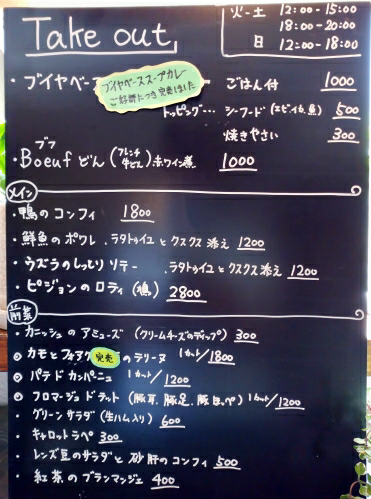 Take out
火-土 12:00-15:00
18:00-20:00
日 12:00-18:00
・ブイヤベース ごはん付 1000
ブイヤベーススープカレー
ご好評につき完売しました
トッピング… シーフード(エビ、イカ、魚) 500
焼きやさい 300
ブフ
・Boeufどん(フレンチ牛どん).赤ワイン煮 1000
メイン
・鴨のコンフィ 1800
・鮮魚のポワレ.ラタトゥイユとクスクス添え 1200
・ウズラのしっとりソテー.ラタトゥイユとクスクス添え 1200
・ピジョンのロティ(鳩) 2800
前菜
・カニッシュのアミューズ(クリームチーズのディップ) 300
◎カモとフォアグ 完売 のテリーヌ 1カット/1800
◎パテドカンパーニュ 1カット/1200
◎フロマージュドテット(豚耳、豚足、豚ほっぺ)1カット/1200
・グリーンサラダ(生ハム入り) 600
・キャロットラペ 300
・レンズ豆のサラダと砂肝のコンフィ 500
・紅茶のブランマンジェ 400